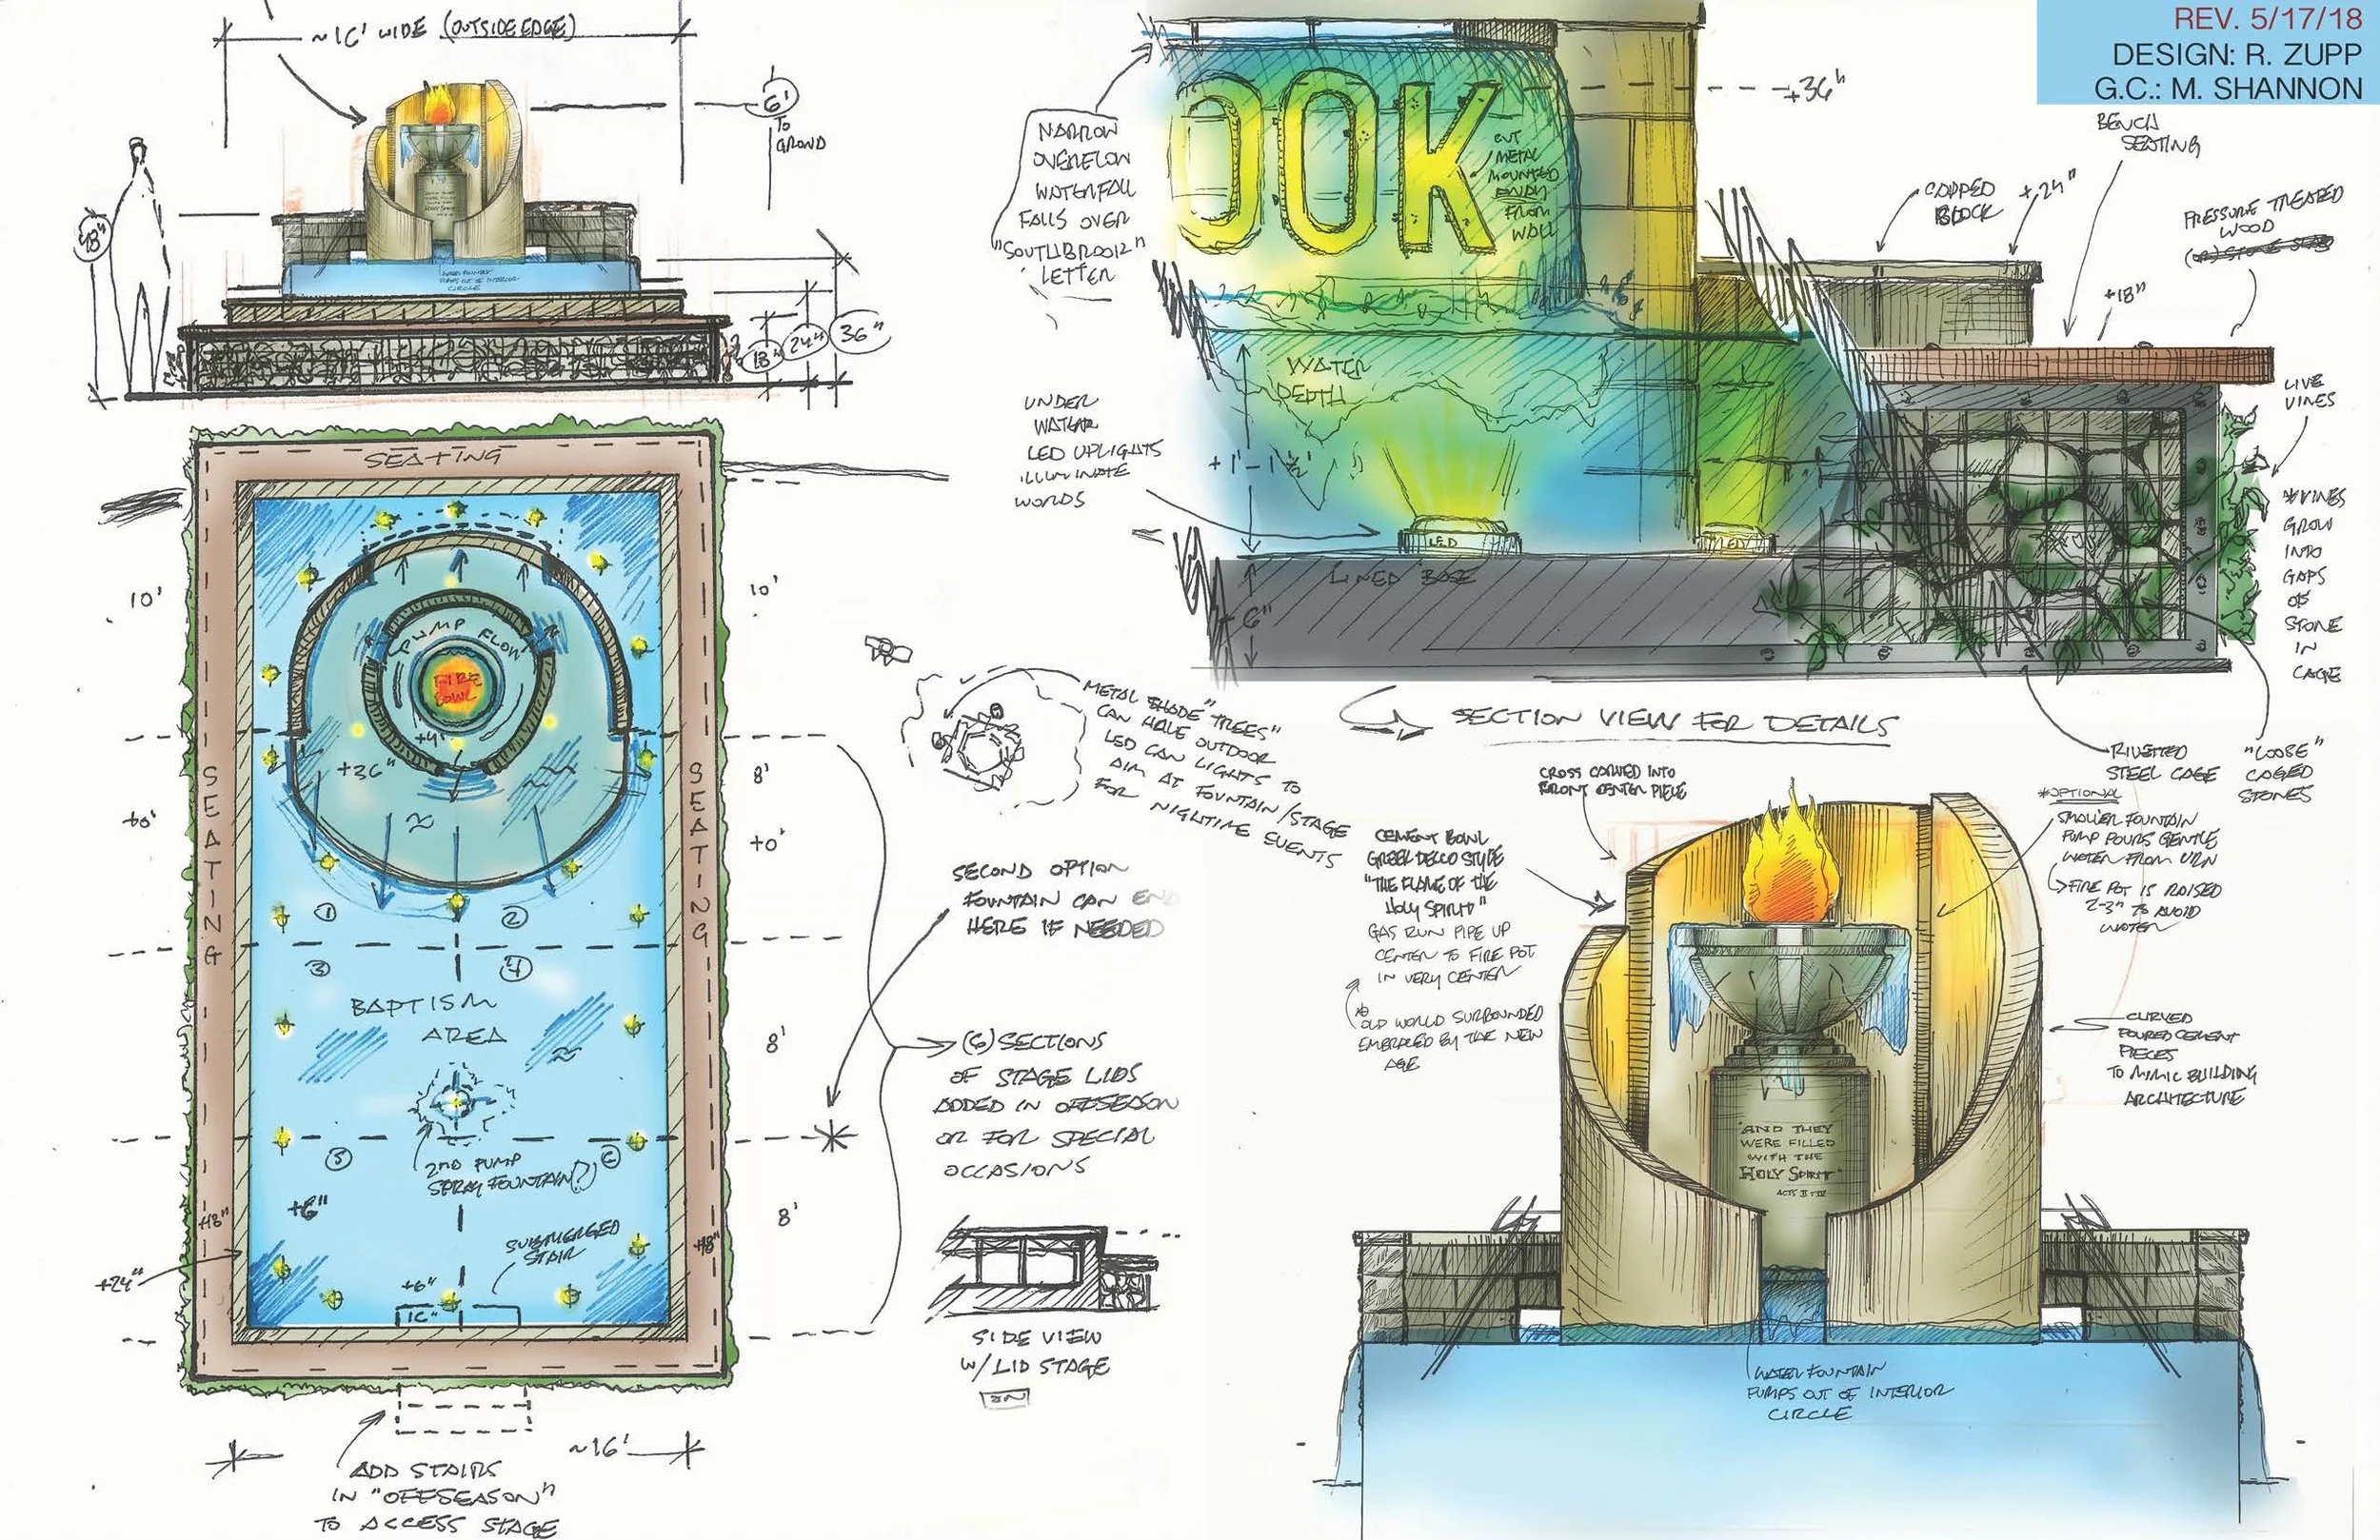 REV. 5/17/18
DESIGN: R. ZUPP
G.C.: M. SHANNON
~16' WIDE (OUTSIDE EDGE)
6'
TO
GROND
48"
WATER FOUNTAIN
PUMPS OUT OF INTERIOR
CIRCLE
18"
24"
36"
SEATING
10'
10'
PUMP FLOW
FIRE
BOWL
+4'
+36"
SEATING
SEATING
8'
+0'
+0'
1
2
3
4
BAPTISM
AREA
8'
5
6
2ND PUMP
SPRAY FOUNTAIN(?)
+6"
+18"
+18"
8'
SUBMERGED
STAIR
+24"
+6"
~16'
ADD STAIRS
IN "OFFSEASON"
TO ACCESS STAGE
METAL SHADE "TREES"
CAN HAVE OUTDOOR
LED CAN LIGHTS TO
AIM AT FOUNTAIN/STAGE
FOR NIGHTIME EVENTS
SECOND OPTION
FOUNTAIN CAN END
HERE IF NEEDED
(6) SECTIONS
OF STAGE LIDS
ADDED IN OFFSEASON
OR FOR SPECIAL
OCCASIONS
SIDE VIEW
W/ LID STAGE
NARROW
OVERFLOW
WATERFALL
FALLS OVER
"SOUTHBROOK"
LETTER
OOK
CUT
METAL
MOUNTED
AWAY
FROM
WALL
+36"
BENCH
SEATING
CAPPED
BLOCK
+24"
PRESSURE TREATED
WOOD
+18"
LIVE
VINES
WATER
DEPTH
UNDER
WATER
LED UPLIGHTS
ILLUMINATE
WORDS
+1'-1 ½"
LED
LED
LINED BASE
6"
*VINES
GROW
INTO
GAPS
OF
STONE
IN
CAGE
SECTION VIEW FOR DETAILS
RIVETTED
STEEL CAGE
"LOOSE"
CAGED
STONES
CROSS CARVED INTO
FRONT CENTER PIECE
CEMENT BOWL
GREEK DECO STYLE
"THE FLAME OF THE
HOLY SPIRIT"
GAS RUN PIPE UP
CENTER TO FIRE POT
IN VERY CENTER
* OLD WORLD SURROUNDED
EMBRACED BY THE NEW
AGE
*OPTIONAL
SMALLER FOUNTAIN
PUMP POURS GENTLE
WATER FROM URN
FIRE POT IS RAISED
2-3" TO AVOID
WATER
CURVED
POURED CEMENT
PIECES
TO MIMIC BUILDING
ARCHITECTURE
"AND THEY
WERE FILLED
WITH THE
HOLY SPIRIT"
WATER FOUNTAIN
PUMPS OUT OF INTERIOR
CIRCLE